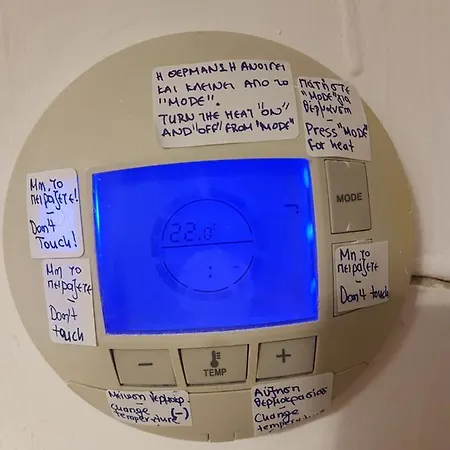 Η ΘΕΡΜΑΝΣΗ ΑΝΟΙΓΕΙ
ΚΑΙ ΚΛΕΙΝΕΙ ΑΠΟ ΤΟ
"MODE".
TURN THE HEAT "ON"
AND "OFF" FROM "MODE"
Πατήστε
"MODE" για
θέρμανση
-
Press "MODE"
for heat
Μη το
πειράζετε!
-
Don't
Touch!
MODE
22.0
Μη το
πειράζετε
-
Don't
touch
Μη το
πειράζετε
-
Don't touch
-
TEMP
+
Μείωση θερμοκρ.
-
Change (-)
temperature
Αύξηση
θερμοκρασίας
-
Change